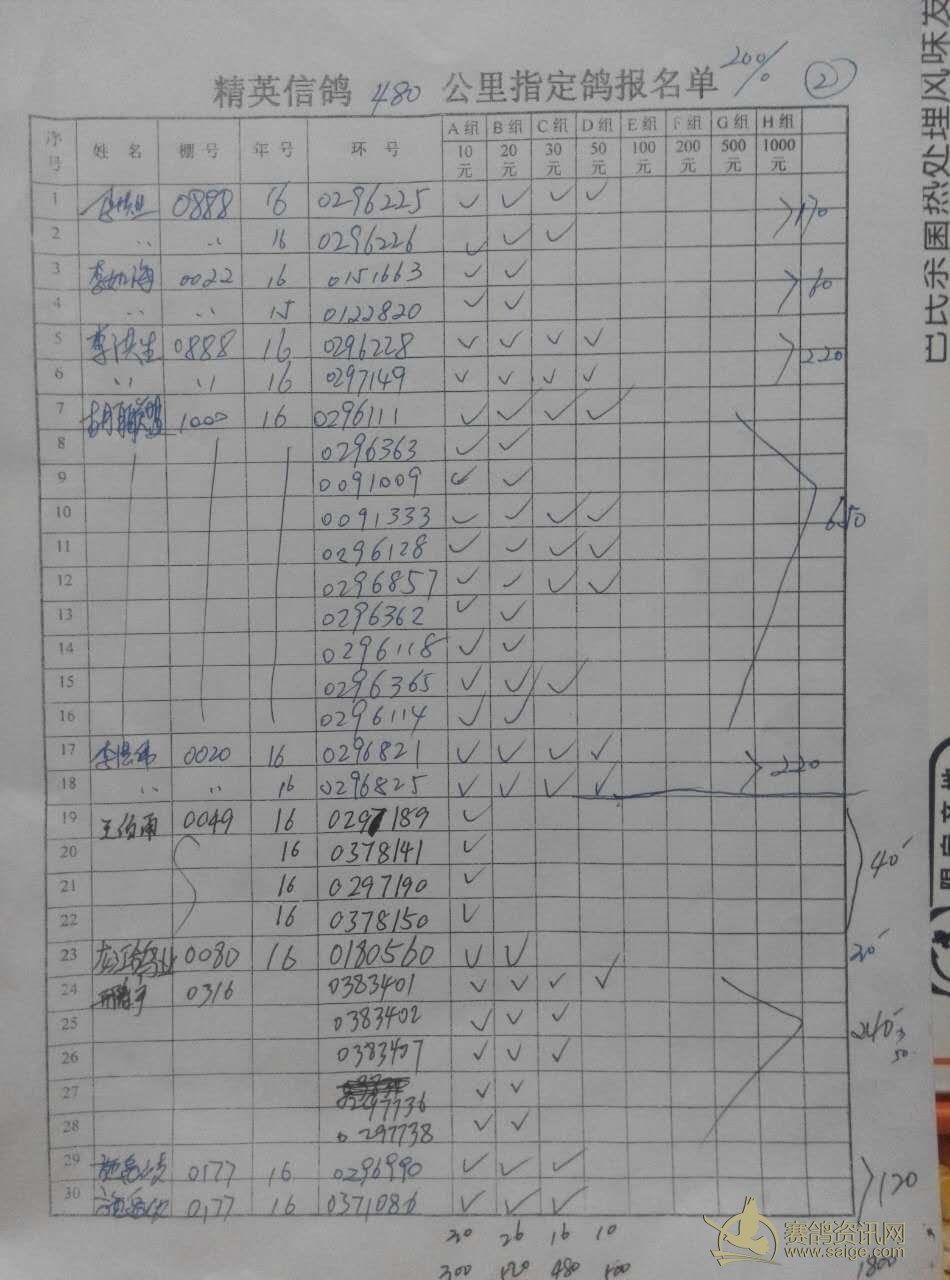 巴比杀菌热处理风味发
200%
精英信鸽 480 公里指定鸽报名单 ②
序号 姓名 棚号 年号 环号 A组 10元 B组 20元 C组 30元 D组 50元 E组 100元 F组 200元 G组 500元 H组 1000元
1 0888 16 0296225 ✓ ✓ ✓ ✓
2 〃 〃 16 0296226 ✓ ✓ ✓ 170
3 李如海 0022 16 0151663 ✓ ✓
4 〃 〃 15 0122820 ✓ ✓ 60
5 李洪生 0888 16 0296228 ✓ ✓ ✓ ✓
6 〃 〃 16 0297149 ✓ ✓ ✓ ✓ 220
7 1000 16 0296111 ✓ ✓ ✓ ✓
8 0296363 ✓ ✓
9 0091009 ✓ ✓
10 0091333 ✓ ✓ ✓ ✓ 650
11 0296128 ✓ ✓ ✓ ✓
12 0296857 ✓ ✓ ✓ ✓
13 0296362 ✓ ✓
14 0296118 ✓ ✓
15 0296365 ✓ ✓ ✓
16 0296114 ✓ ✓
17 0020 16 0296821 ✓ ✓ ✓ ✓
18 〃 〃 16 0296825 ✓ ✓ ✓ ✓ 220
19 0049 16 0297189 ✓
20 16 0378141 ✓ 40
21 16 0297190 ✓
22 16 0378150 ✓
23 0080 16 0180560 ✓ ✓ 20
24 0316 0383401 ✓ ✓ ✓ ✓
25 0383402 ✓ ✓ ✓
26 0383407 ✓ ✓ ✓
27 0297736 ✓ ✓
28 0297738 ✓ ✓
29 0177 16 0296990 ✓ ✓ ✓
30 0177 16 0371086 ✓ ✓ ✓ 120
30 26 16 10
300 520 480 500 1800
赛鸽资讯网
www.saige.com